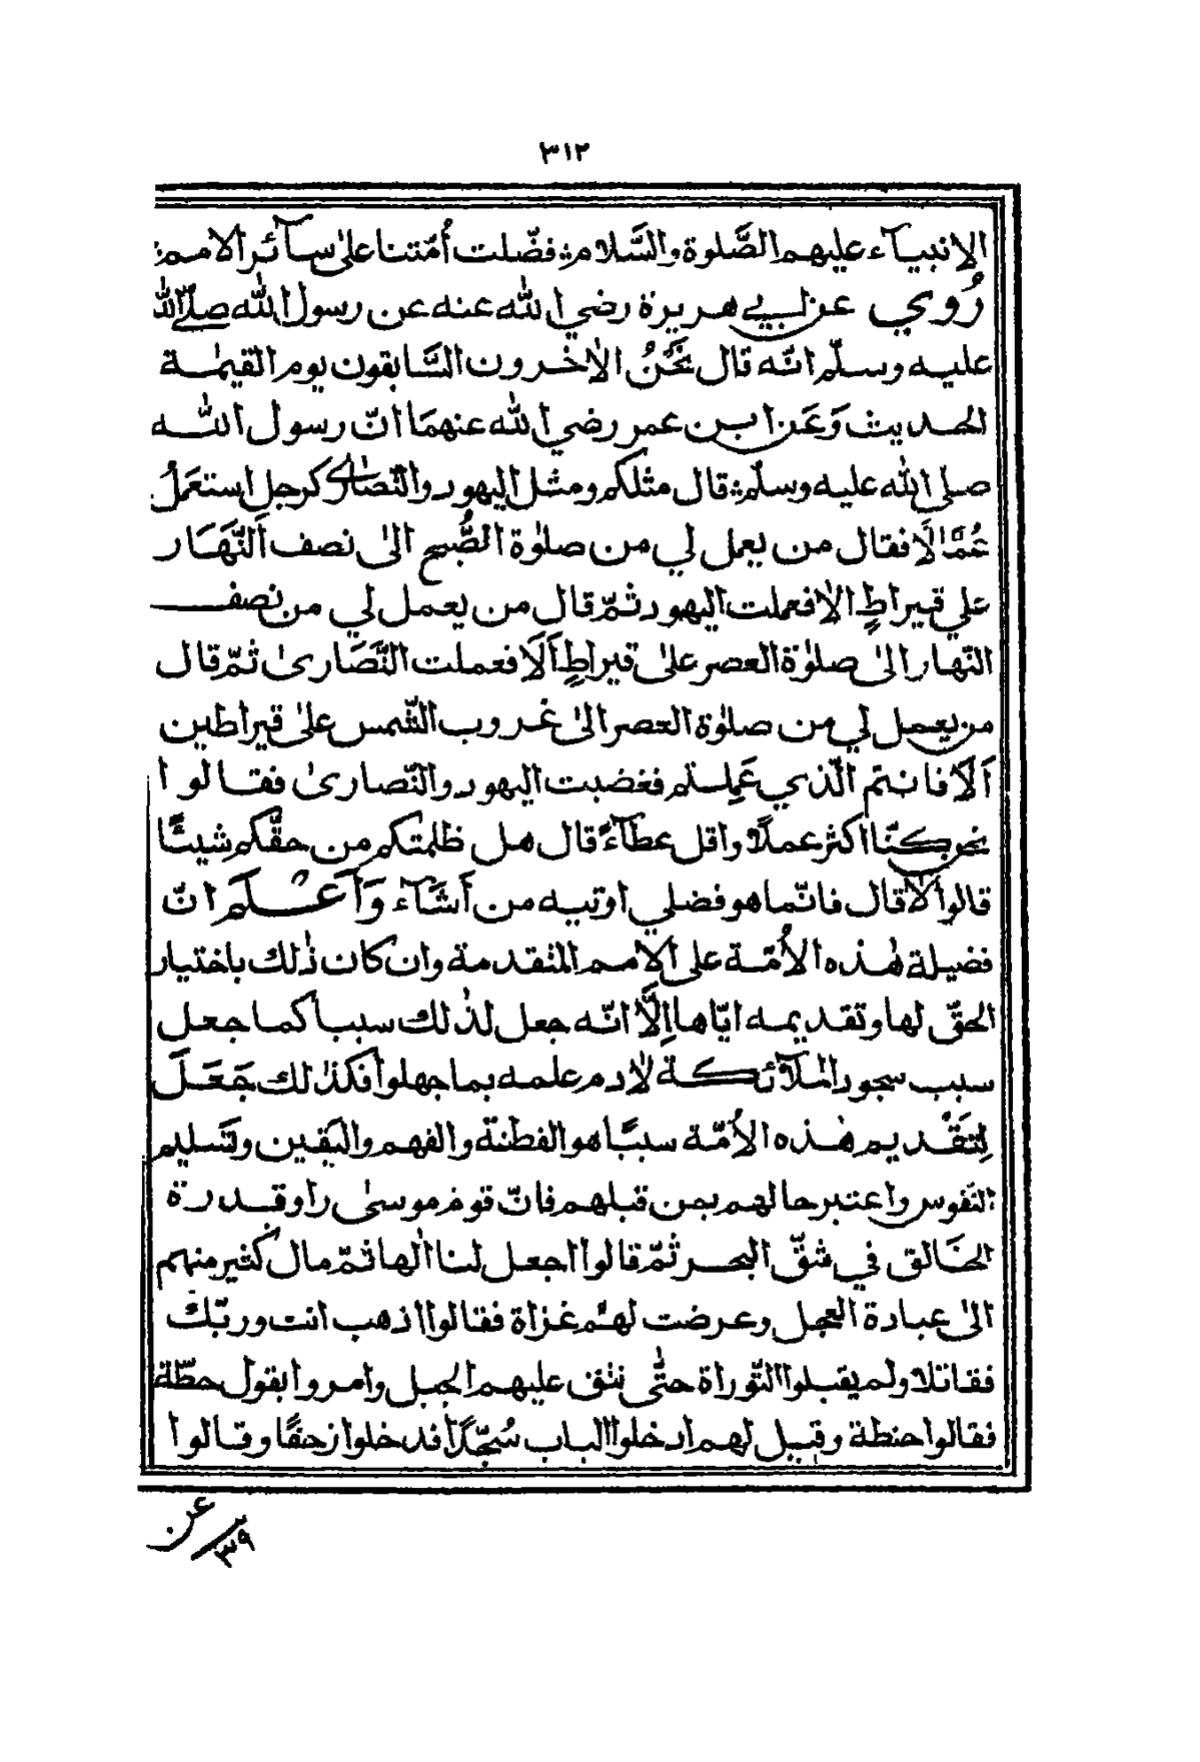 ٣١٢
الانبياۤء عليهم الصَّلوة والسَّلام فضّلت أمّتنا علىٰ ساۤئر الامم
رُوي عن ابي هريرة رضي الله عنه عن رسول الله صلّى الله
عليه وسلّم انّه قال نَحْنُ الاٰخرون السَّابقون يوم القيٰمة
الحديث وَعَن ابن عمر رضي الله عنهمَا انّ رسول الله
صلى الله عليه وسلّم قال مثلكم ومثل اليهود والنّصارٰى كرجل استعمل
عُمَّالًا فقال من يعمل لي من صلوٰة الصُّبح الىٰ نصف النَّهَار
على قيراطٍ الا فعملت اليهود ثمّ قال من يعمل لي من نصف
النّهار الىٰ صلوٰة العصر علىٰ قيراطٍ اَلَا فعملت النَّصَارىٰ ثمّ قال
من يعمل لي من صلوٰة العصر الىٰ غروب الشّمس علىٰ قيراطين
اَلَا فانتم الّذي عَمِلتم فغضبت اليهود والنّصارىٰ فقالوا
نحن كنّا اكثر عملًا واقل عطاۤءً قال هل ظلمتكم من حقّكم شيئًا
قالوا لا قال فانّما هو فضلي اوتيه من أشَاۤء وَاَعْلَم انّ
فضيلة هٰذه الأُمّة على الامم المتقدمة وان كان ذٰلك باختيار
الحقّ لها وتقديمه ايّاها اِلَّا انّه جعل لذٰلك سببا كما جعل
سبب سجود الملاۤئكة لاٰدم علمه بما جهلوا فكذٰلك جَعَلَ
لِتَقْديم هٰذه الأُمّة سببًا هو الفطنة والفهم واليَقين وتَسليم
النّفوس واعتبر حالهم بمن قبلهم فانّ قوم موسىٰ راوقدرة
الخَالق في شقّ البحر ثمّ قالوا اجعل لنا الٰها ثمّ مال كثير منهم
الىٰ عبادة العجل وعرضت لهُم غزاة فقالوا اذهب انت وربّك
فقاتلا ولم يقبلوا التّوراة حتّٰى نتق عليهم الجبل وامروا بقول حطّة
فقالوا حنطة وقيل لهم ادخلوا الباب سُجّدًا فدخلوا زحفًا وقالوا
عن
٣٩